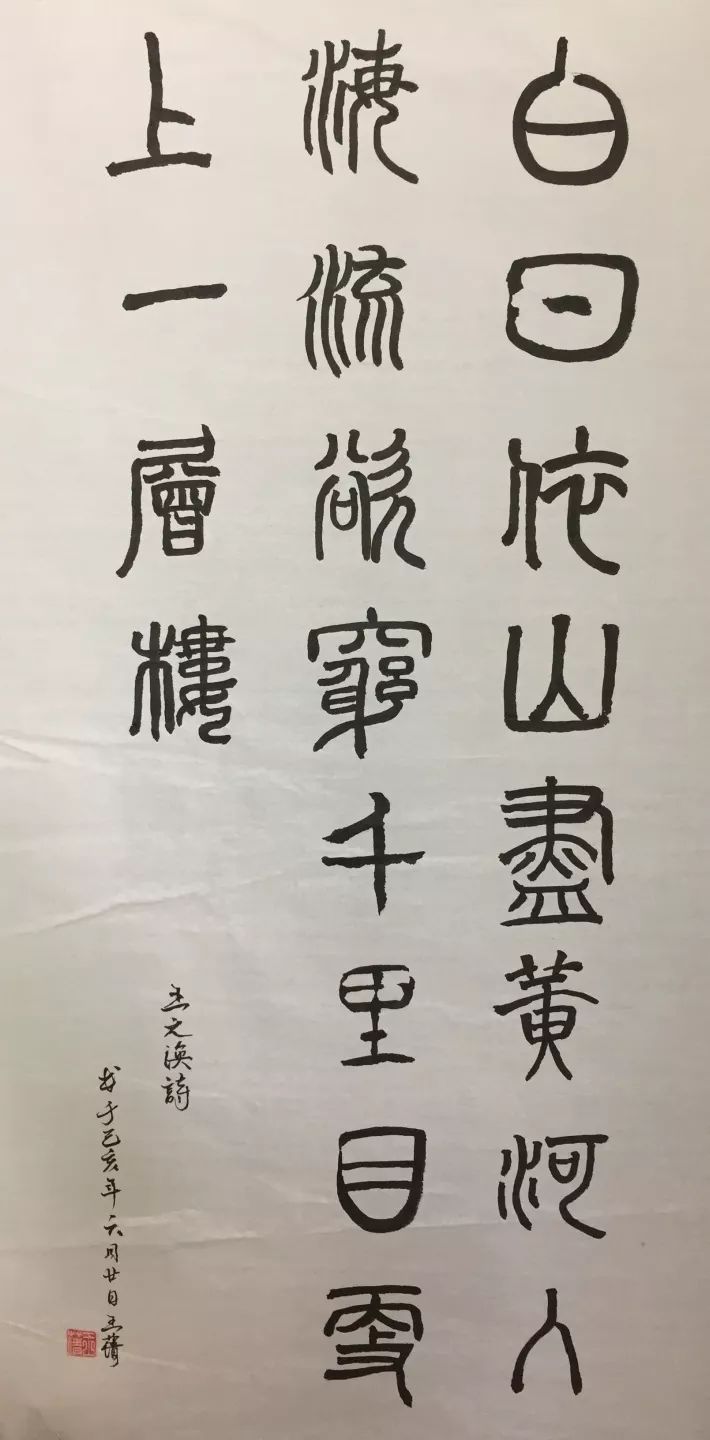 白日依山盡黃河入
海流欲窮千里目更
上一層樓
王之渙詩
书于己亥年六月廿日王